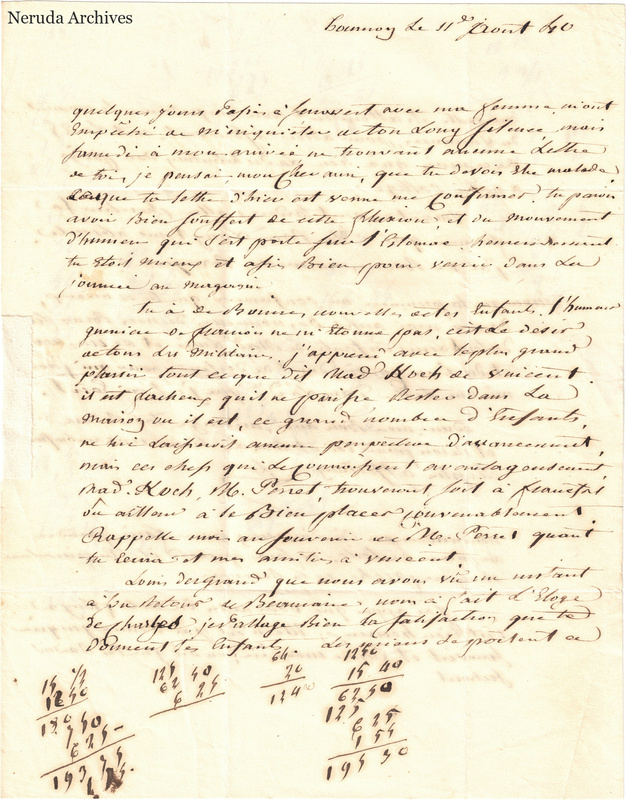 Neruda Archives
Tournon le 11 Aout 40
quelques jours passés à avec ma femme, m'ont
Empêché de m'inquiéter de ton Long Silence, mais
Samedi à mon arrivée ne trouvant aucune Lettre
de toi, je pensai, mon Cher ami, que tu devois Etre malade
ce que ta lettre d'hier est venue me Confirmer. tu parois
avoir Bien Souffert de cette fluxion, et du mouvement
d'humeur qui s'est porté sur l'Estomac heureusement
tu Etois mieux et assés Bien pour venir dans La
journée au magasin.
tu à de Bonnes nouvelles de tes Enfants. l'humeur
de ne m'Etonne pas, c'est Le desir
de tous Les militaires. j'apprend avec le plus grand
plaisir tout ce que dit Mad. Koch de vincent.
il est facheux qu'il ne puisse Rester dans La
maison ou il est, ce grand nombre d'Enfants,
ne lui Laisseroit aucune perspective d'avancement,
mais ces chefs qui Le connoissent avantageusement,
Mad. Koch, M. Perret, trouveront soit à francfort
ou ailleurs à le Bien placer convenablement.
Rappelle moi au Souvenir de M. Perret quant
tu Ecrira et mes amitiés à vincent.
Louis desgrand que nous avons vû un instant
à Son Retour de Beaucaire, nous à fait L'Eloge
de Charles. je Partage Bien la Satisfaction que te
Donnent tes Enfants. Les miens se portent
15 1/2
12 50
150
7 50
6 25
193 75
125
62 50
6 25
64
20
1240
1250
15 40
6250
125
6 25
1 55
195 30